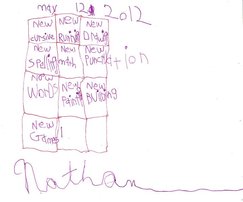 may 12 2012
New cursive New Runing New Drawing
New Spelling New math New Punctuation
New Words New Paint New Building
New Games 1
Nathan